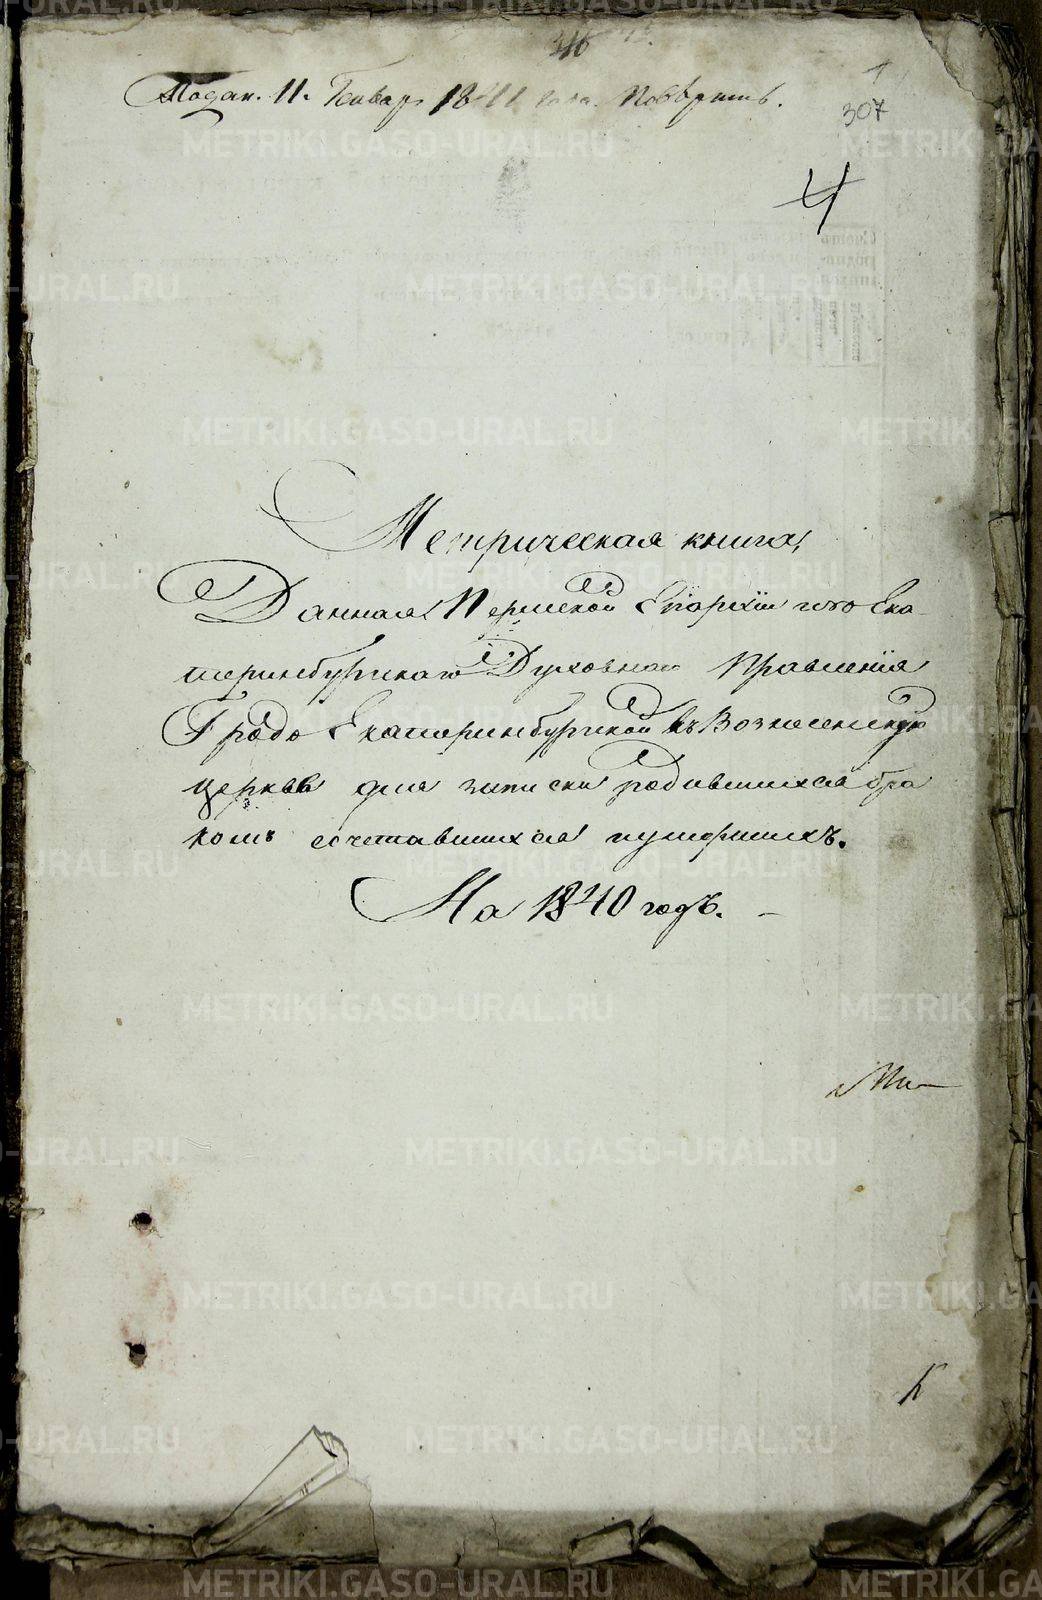 Подан. 11. Генвар. 1841 года.
307
4
Метрическая книга,
Данная Пермской Епархіи изъ Ека
теринбургскаго Духовнаго Правленія
Градо Екатеринбургской въ Вознесенскую
церковь для записки родившихся бра
комъ сочетавшихся и умершихъ.
На 1840 годъ.
METRIKI.GASO-URAL.RU